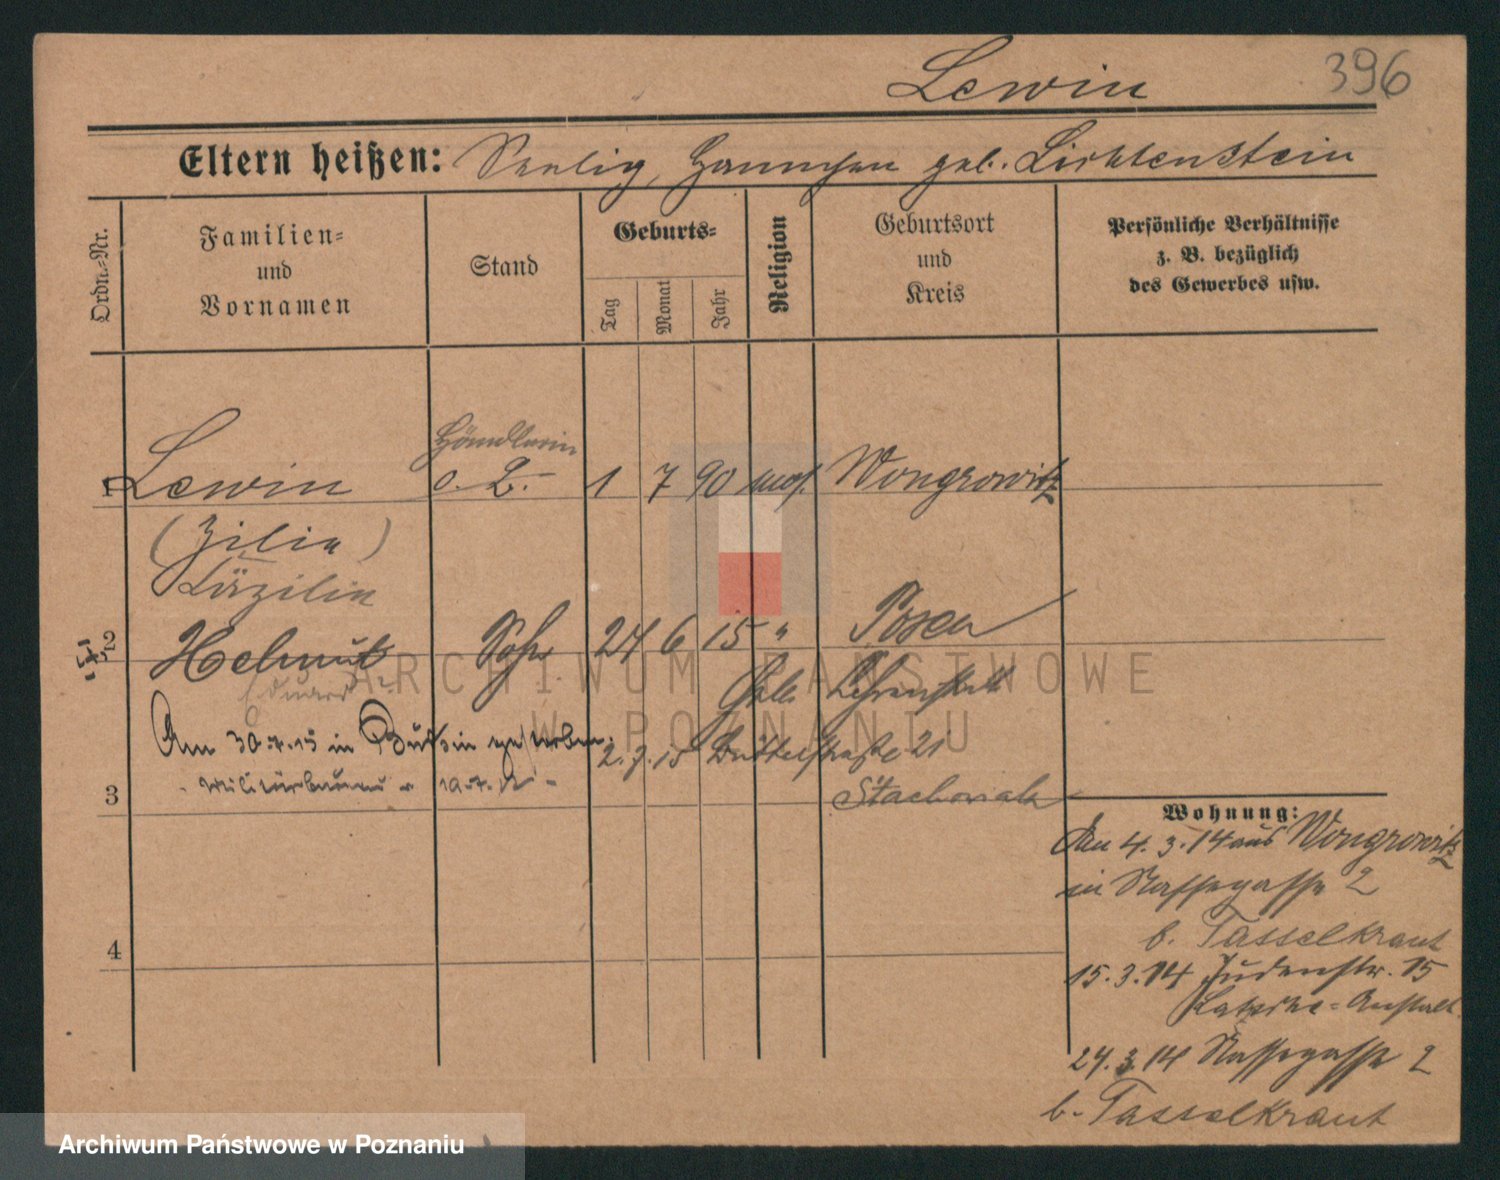 Lewin
396
Eltern heißen: Seelig, Hannchen geb. Lichtenstein
Ordn.-Nr.
Familien-
und
Vornamen
Stand
Geburts-
Tag
Monat
Jahr
Religion
Geburtsort
und
Kreis
Persönliche Verhältnisse
z. B. bezüglich
des Gewerbes usw.
Händlerin
1 Lewin o. B. 1 7 90 mos. Wongrowitz
(Zilia)
Zäzilie
2 Helmut Sohn 24 6 15 " Posen
Eduard
Heb. Lehranstalt
Am 30.7.15 in Buk gestorben.
2.7.15 21
19.7.
Stachowiak
3
Wohnung:
Am 4.3.14 aus Wongrowitz
in Nassegasse 2
b. Tasselkraut
15.3.14 Judenstr. 15
Latzke-Anstalt
24.3.14 Nassegasse 2
b. Tasselkraut
4
ARCHIWUM PAŃSTWOWE
W POZNANIU
Archiwum Państwowe w Poznaniu